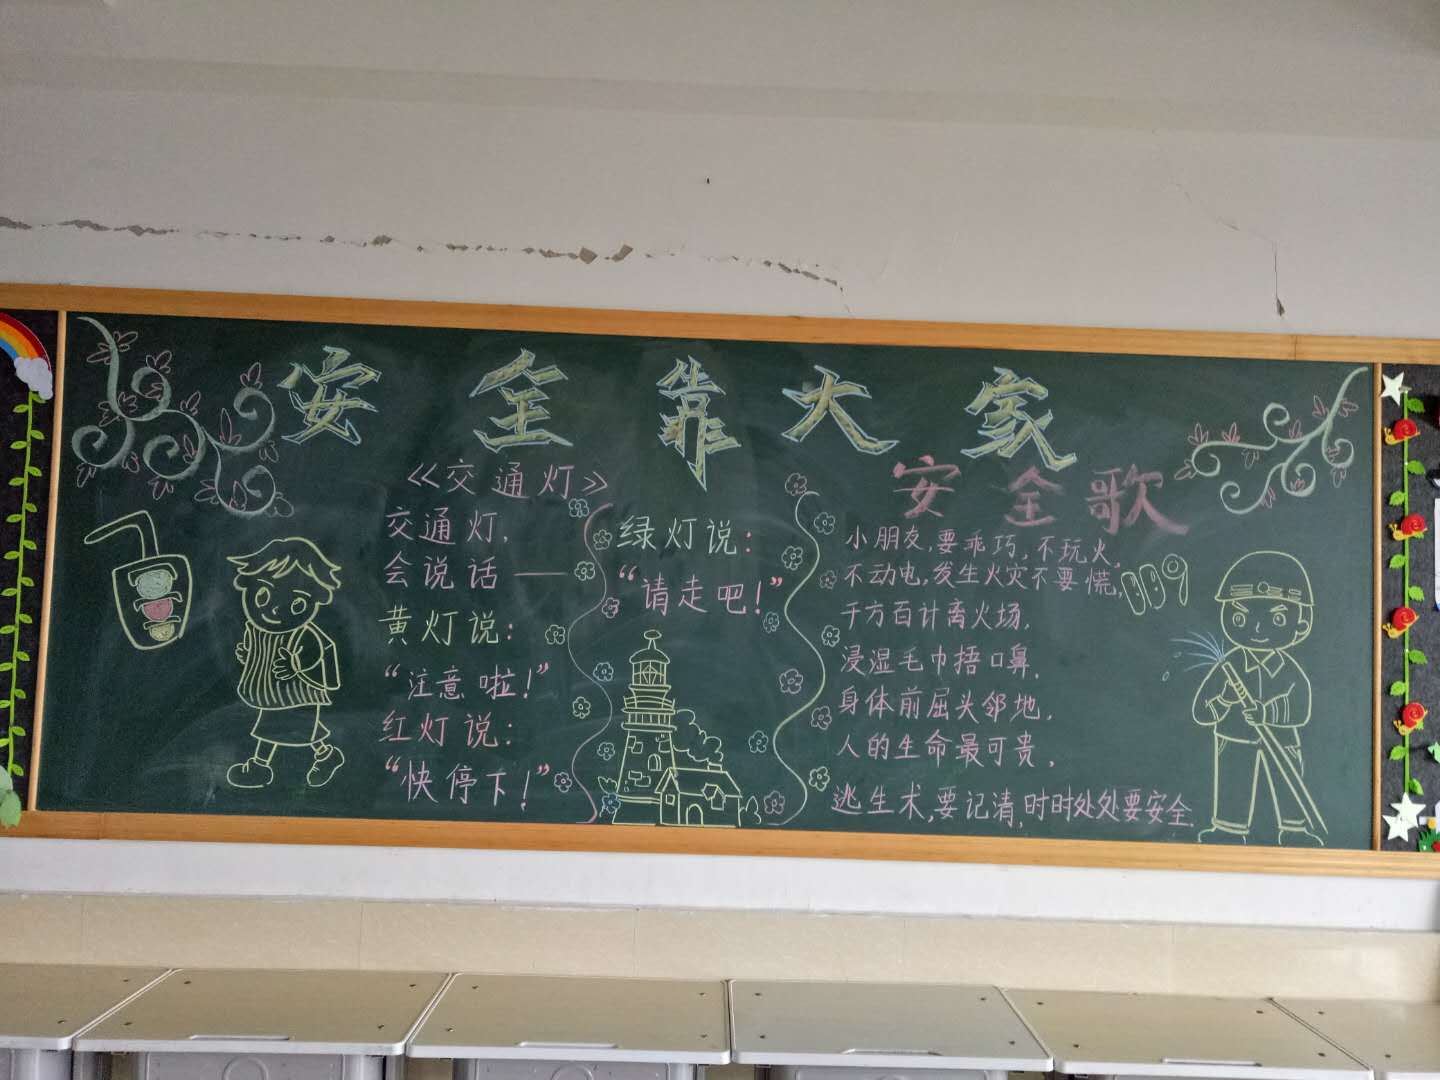 安全靠大家
《交通灯》
交通灯，
会说话——
黄灯说：
“注意啦！”
红灯说：
“快停下！”
绿灯说：
“请走吧！”
安全歌
小朋友，要乖巧，不玩火，
不动电，发生火灾不要慌，
千方百计离火场，
浸湿毛巾捂口鼻，
身体前屈头邻地，
人的生命最可贵，
逃生术，要记清，时时处处要安全
119